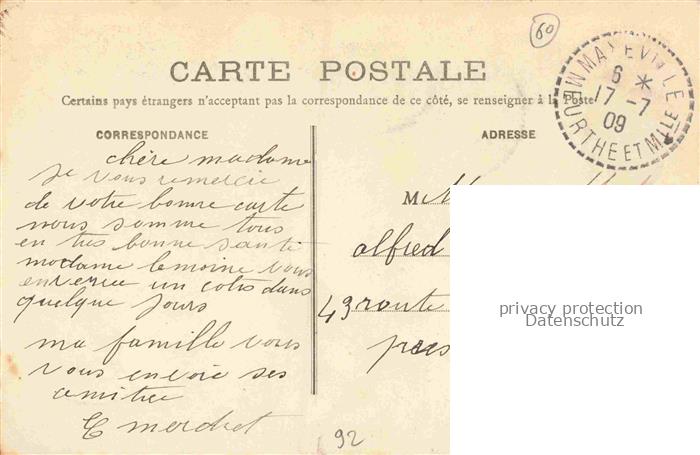 60
CARTE POSTALE
Certains pays étrangers n'acceptant pas la correspondance de ce côté, se renseigner à la Poste
MAXEVILLE
6 *
17 -7
09
MEURTHE ET MLLE
CORRESPONDANCE
chère madame
je vous remercie
de votre bonne carte
nous somme tous
en tres bonne santi
modame lemoine vous
enverra un colis dans
quelque jours
ma famille vous
vous envoie ses
amitiee
E
ADRESSE
M
alfred
43 route
pres
92
privacy protection
Datenschutz